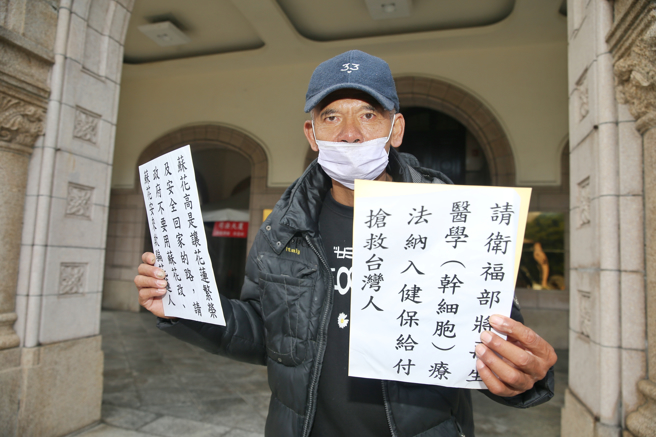 蘇花高是讓花蓮繁榮
及安全回家的路，請
政府不要用蘇花改、
蘇花安來欺騙人
請衛福部將生
醫學（幹細胞）療
法納入健保給付
搶救台灣人
33